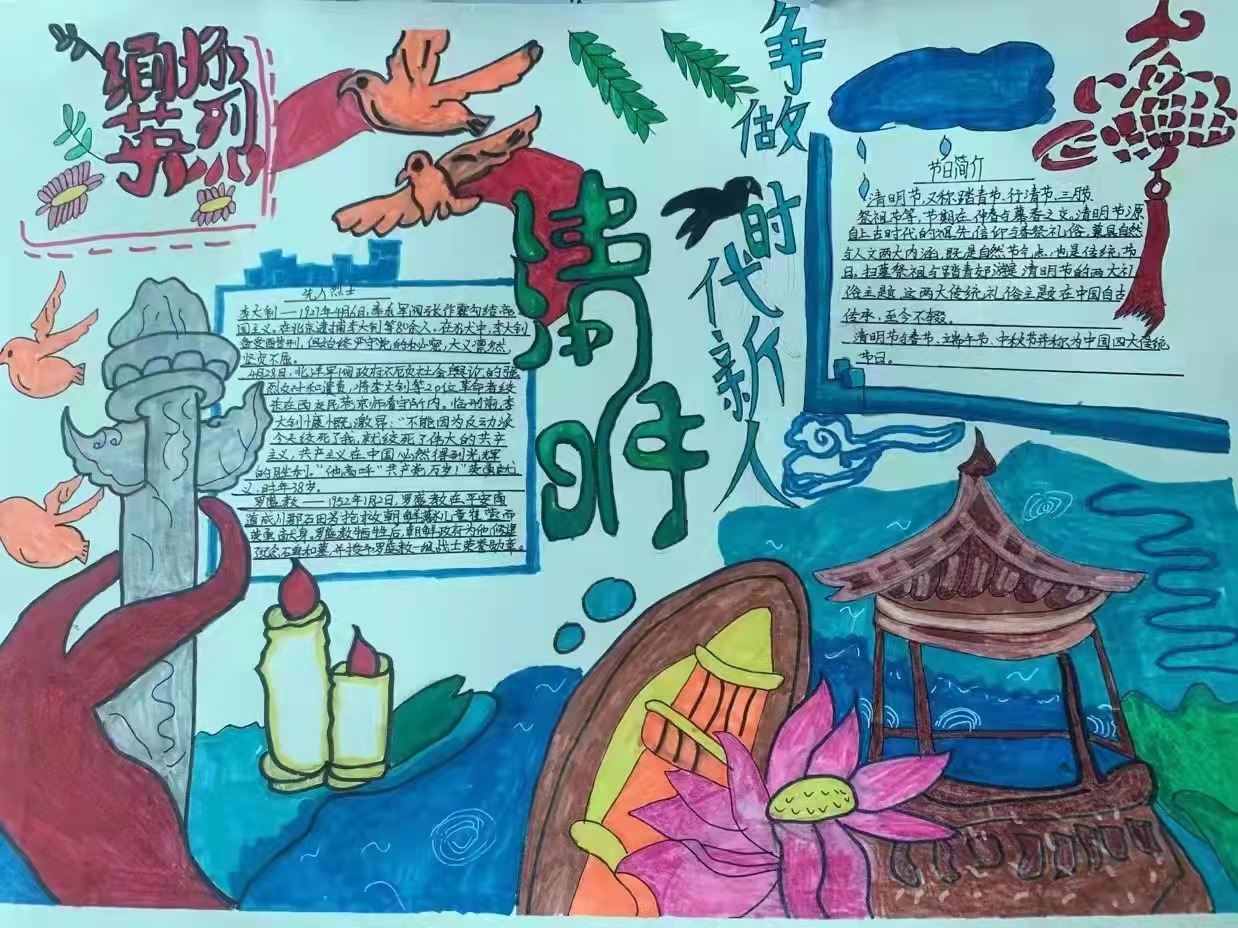 缅怀
英烈
清明
争做时代新人
节日简介
清明节,又称踏青节、行清节、三月节、
祭祖节等,节期在仲春与暮春之交。清明节源
自上古时代的祖先信仰与春祭礼俗,兼具自然
与人文两大内涵,既是自然节气点,也是传统节
日,扫墓祭祖与踏青郊游是清明节的两大礼
俗主题,这两大传统礼俗主题在中国自古
传承,至今不辍。
清明节与春节、端午节、中秋节并称为中国四大传统
节日。
先人烈士
李大钊——1927年4月6日,奉系军阀张作霖勾结帝
国主义,在北京逮捕李大钊等80余人,在狱中,李大钊
备受酷刑,但始终严守党的秘密,大义凛然
坚贞不屈。
4月28日,北洋军阀政府不顾社会舆论的强
烈反对和谴责,将李大钊等20位革命者绞
杀在西交民巷京师看守所内。临刑前,李
大钊慷慨激昂:“不能因为反动派
今天绞死了我,就绞死了伟大的共产
主义,共产主义在中国必然得到光辉
的胜利。”他高呼“共产党万岁!”英勇就
义,时年38岁。
罗盛教——1952年1月2日,罗盛教在平安南
道成川郡石田为抢救朝鲜落水儿童崔莹而
英勇献身。罗盛教牺牲后,朝鲜政府为他修建
了纪念石碑和墓,并授予罗盛教一级战士荣誉勋章。